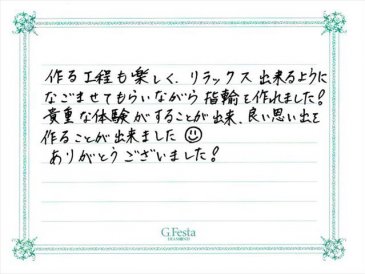 作る工程も楽しく、リラックス出来るように
なごませてもらいながら指輪を作れました!
貴重な体験がすることが出来、良い思い出を
作ることが出来ました☺
ありがとうございました!
G.Festa
DIAMOND